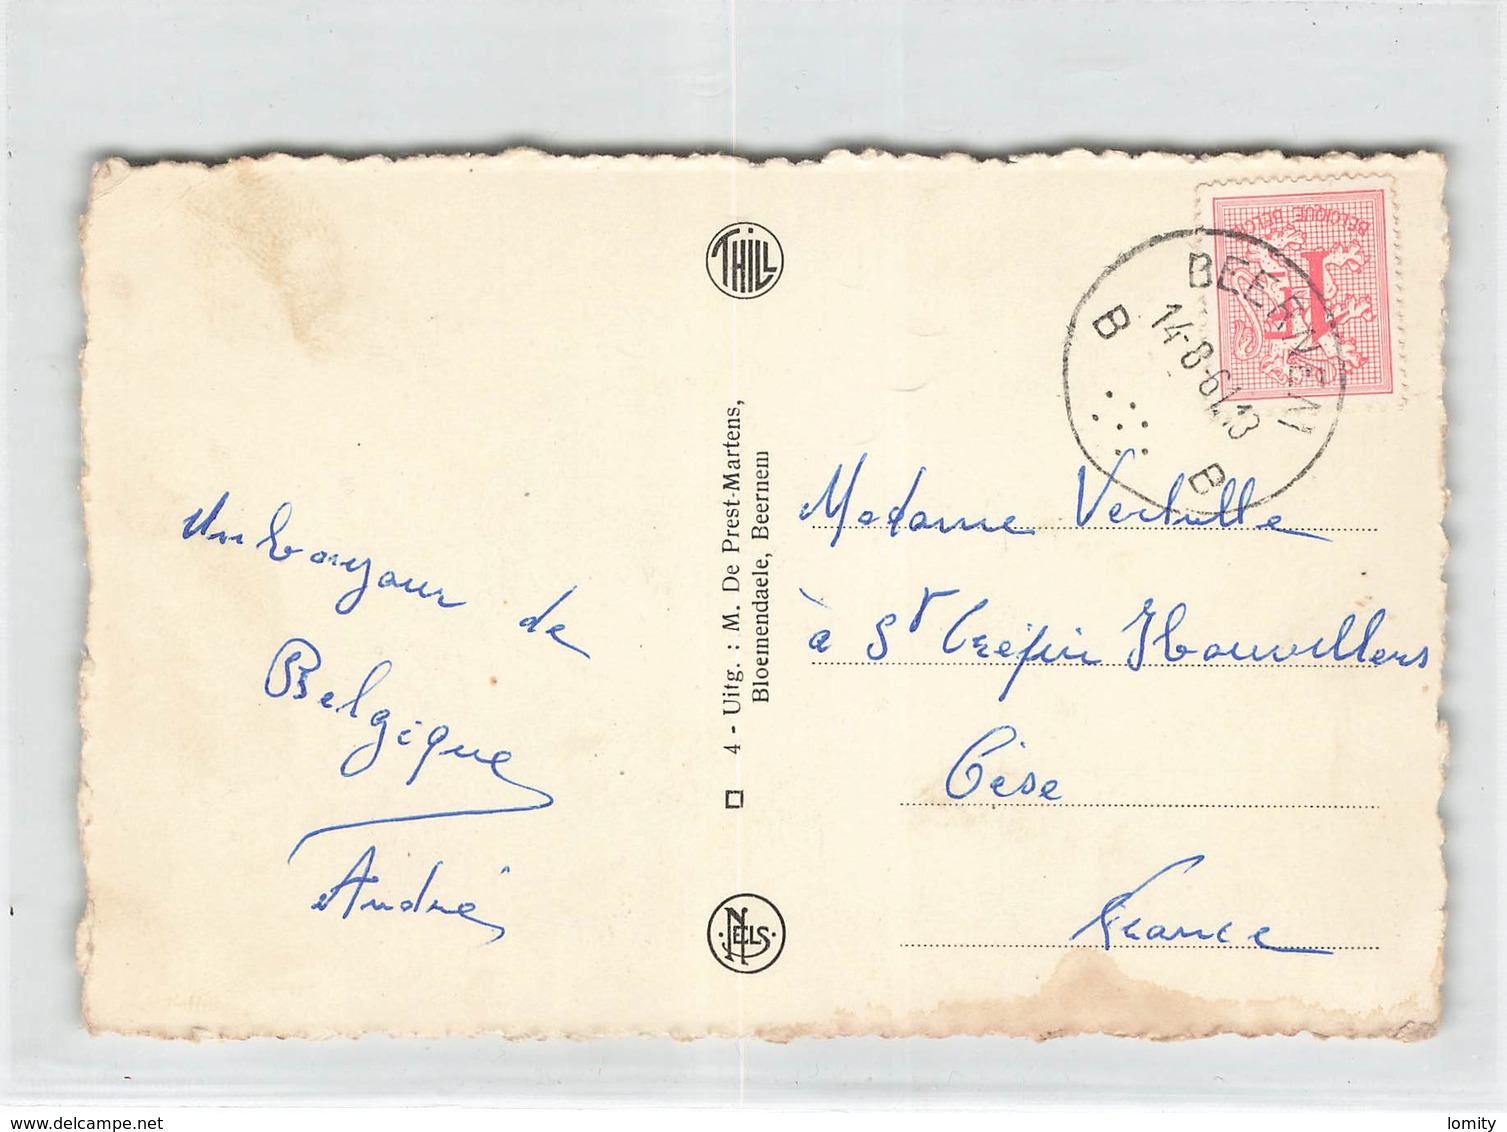 Un bonjour de
Belgique
André
THILL
4 - Uitg. : M. De Prest-Martens,
Bloemendaele, Beernem
NELS
BELGIQUE BELGI
1F
BEERNEM
14-8-61.13
B B
Madame Vertulle
à St Crépin Ibouvillers
Oise
France
www.delcampe.net
lomity